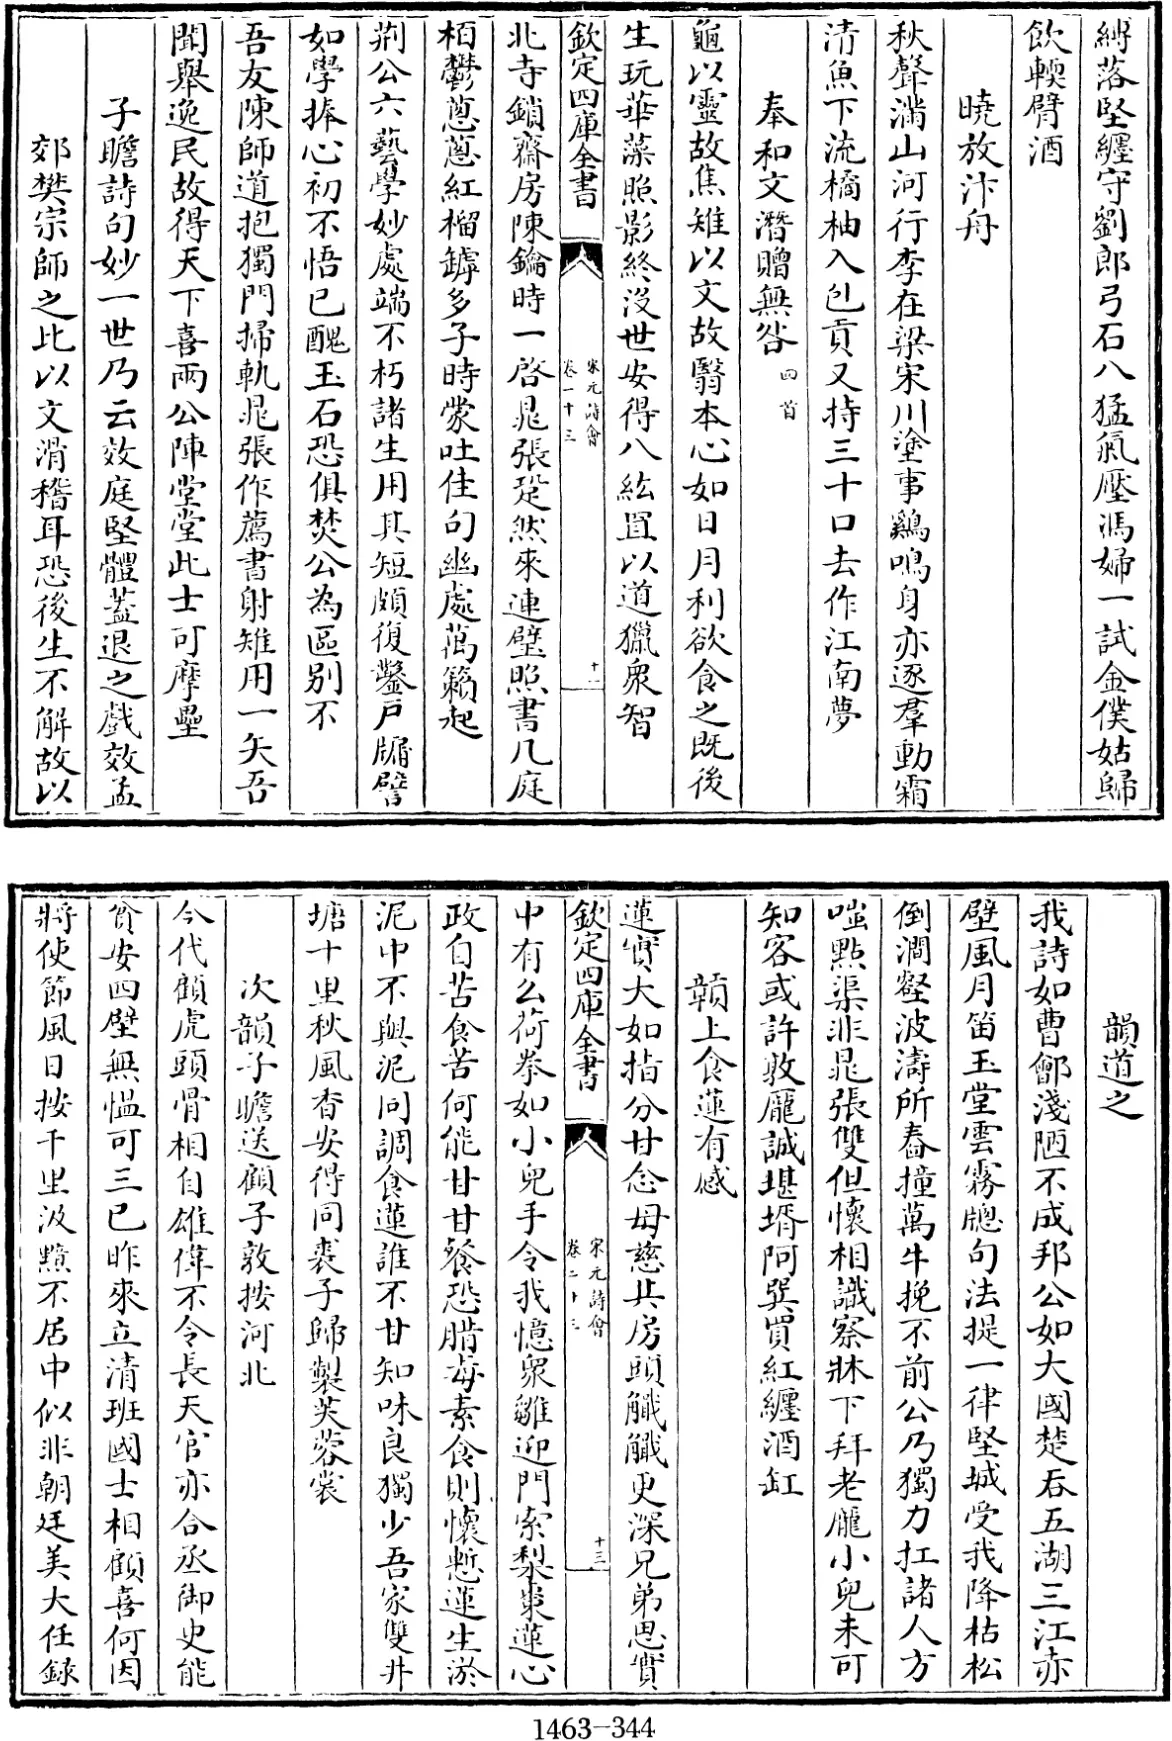 縛落堅纏守劉郎弓石八猛氣壓馮婦一試金僕姑歸
飲輭臂酒
曉放汴舟
秋聲滿山河行李在梁宋川塗事鷄鳴身亦逐羣動霜
清魚下流橘柚入包貢又持三十口去作江南夢
奉和文潛贈無咎四首
龜以靈故焦雉以文故翳本心如日月利欲食之既後
生玩華藻照影終沒世安得八紘罝以道獵衆智
欽定四庫全書
宋元詩會
卷二十三
十二
北寺鎖齋房陳鑰時一啓晁張跫然來連璧照書几庭
栢鬱蔥蔥紅榴罅多子時蒙吐佳句幽處萬籟起
荆公六藝學妙處端不朽諸生用其短頗復鑿戶牖譬
如學捧心初不悟已醜玉石恐俱焚公為區别不
吾友陳師道抱獨門掃軌晁張作薦書射雉用一矢吾
聞舉逸民故得天下喜兩公陣堂堂此士可摩壘
子瞻詩句妙一世乃云效庭堅體蓋退之戲效孟
郊樊宗師之比以文滑稽耳恐後生不解故以
韻道之
我詩如曹鄶淺陋不成邦公如大國楚吞五湖三江赤
壁風月笛玉堂雲霧牕句法提一律堅城受我降枯松
倒澗壑波濤所舂撞萬牛挽不前公乃獨力扛諸人方
嗤點渠非晁張雙但懷相識察牀下拜老龐小兒未可
知客或許敦龎誠堪壻阿巽買紅纏酒缸
贑上食蓮有感
蓮實大如指分甘念母慈共房頭觿觿更深兄弟思實
欽定四庫全書
宋元詩會
卷二十三
十三
中有么荷拳如小兒手令我憶衆雛迎門索梨棗蓮心
政自苦食苦何能甘甘餐恐腊毒素食則懷慙蓮生淤
泥中不與泥同調食蓮誰不甘知味良獨少吾家雙井
塘十里秋風香安得同裘子歸製芙蓉裳
次韻子瞻送顧子敦按河北
今代顧虎頭骨相自雄偉不令長天官亦合丞御史能
貧安四壁無愠可三已昨來立清班國士相顧喜何因
將使節風日按千里汲黯不居中似非朝廷美大任録
1463-344